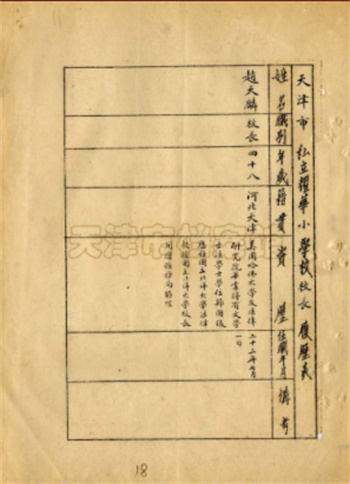 天津市 私立耀華小學校校長 履歷表
姓名 職別 年歲 籍貫 資歷 任職年月 備考
趙天麟 校長 四十八 河北天津 美國哈佛大學及法律
研究院畢業得有文學
士法學士學位歸國後
歷任國立北洋大學法律
教授國立北洋大學校長
二十三年七月
一日
天津市档案
18